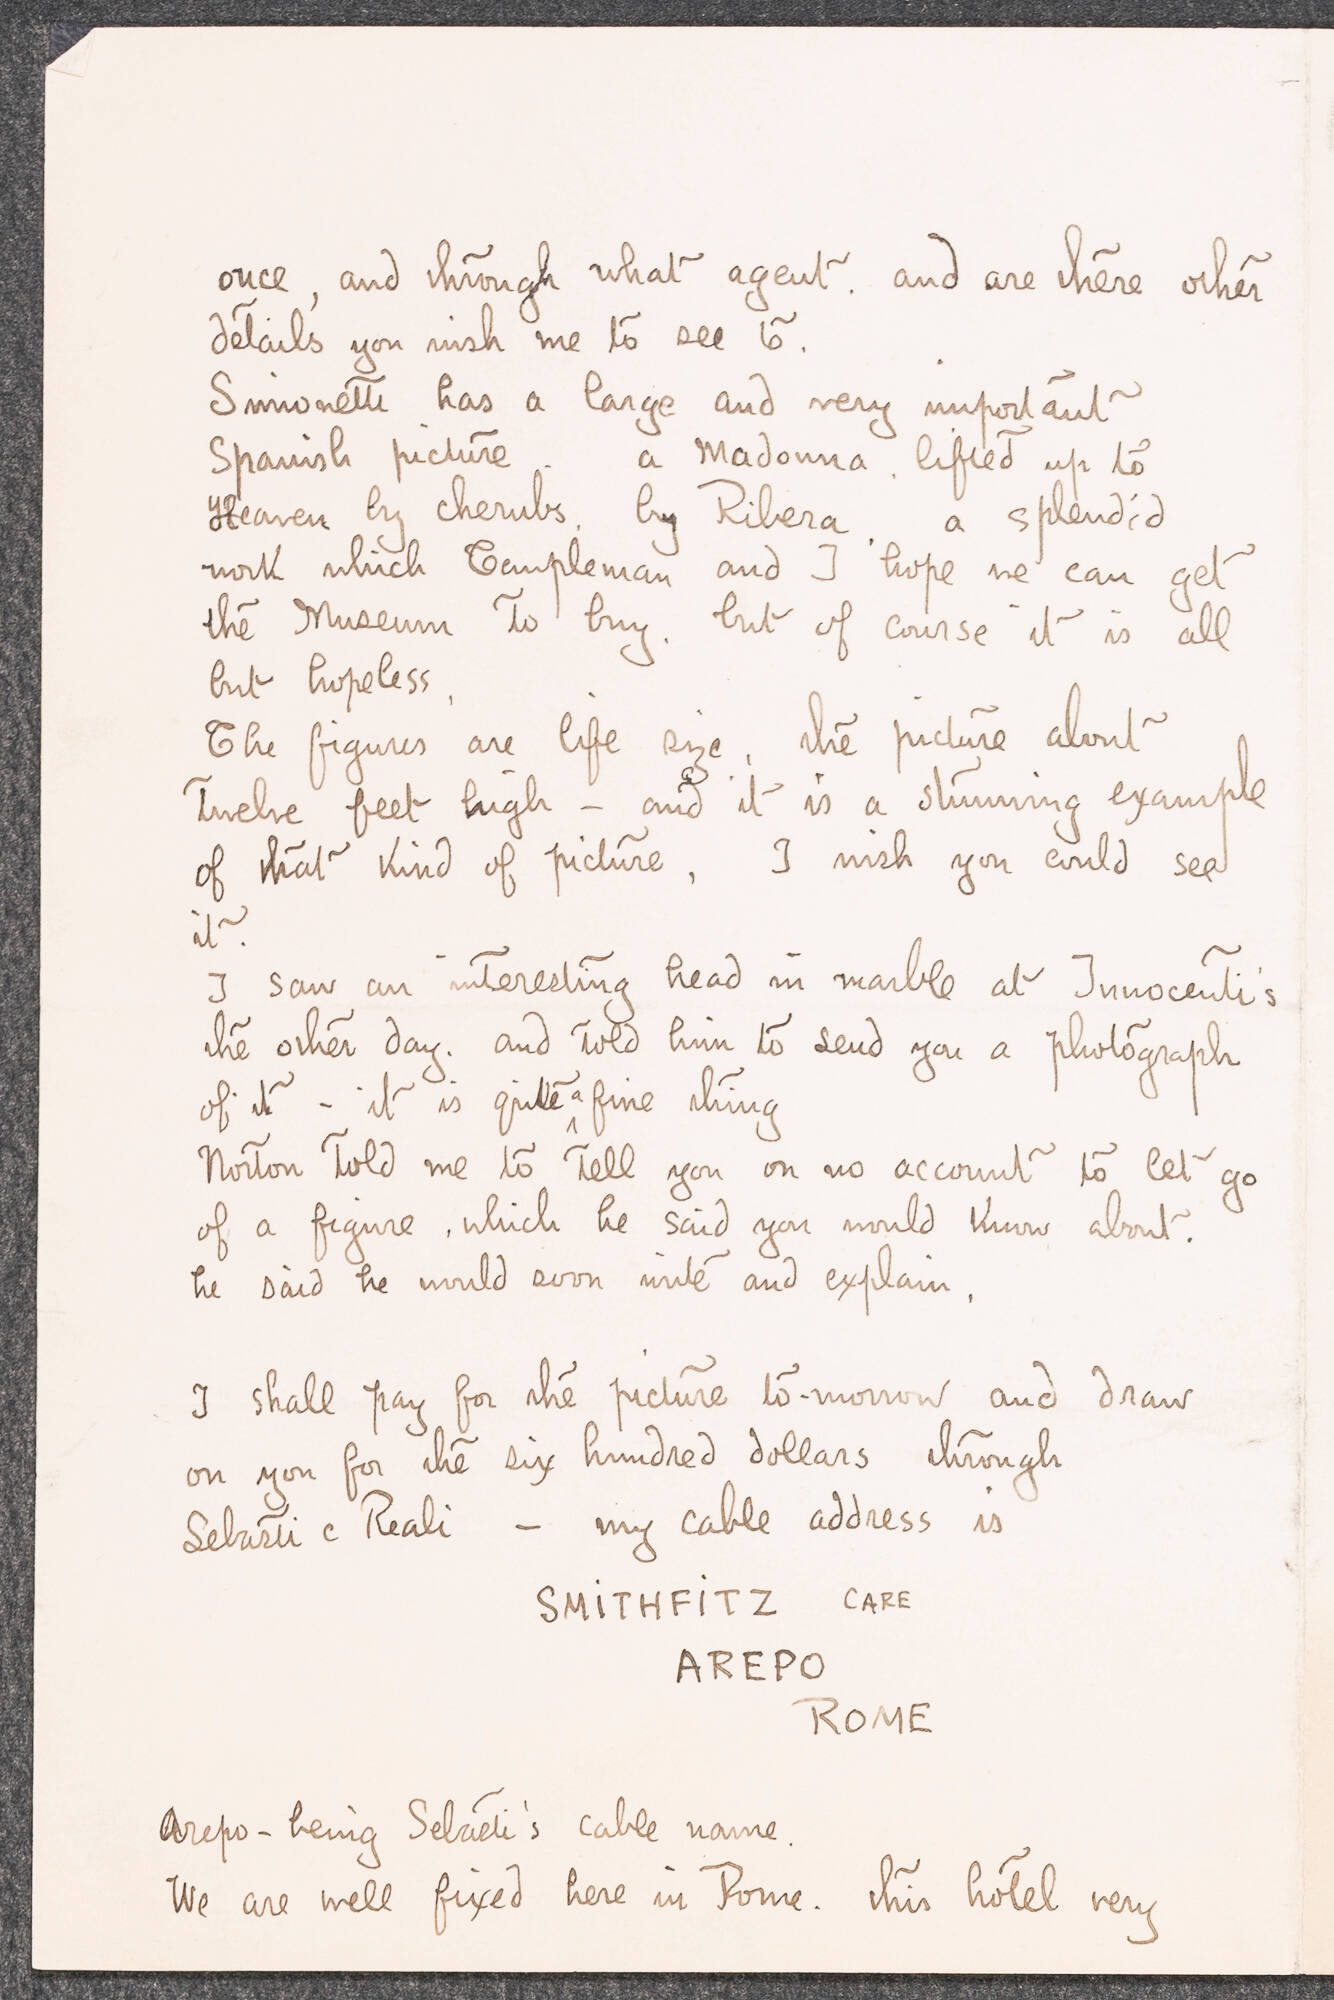 once, and through what agent. and are there other
details you wish me to see to.
Simonetti has a large and very important
Spanish picture. a Madonna. lifted up to
Heaven by cherubs. by Ribera. a splendid
work which Coupleman and I hope we can get
the Museum to buy. but of course it is all
but hopeless.
The figures are life size. the picture about
twelve feet high - and it is a stunning example
of that kind of picture, I wish you could see
it.
I saw an interesting head in marble at Innocenti's
the other day. and told him to send you a photograph
of it - it is quite a fine thing
Norton told me to tell you on no account to let go
of a figure, which he said you would know about.
he said he would soon write and explain.
I shall pay for the picture to-morrow and draw
on you for the six hundred dollars through
Sebasti e Reali - my cable address is
SMITHFITZ CARE
AREPO
ROME
Arepo - being Sebasti's cable name.
We are well fixed here in Rome. this hotel very